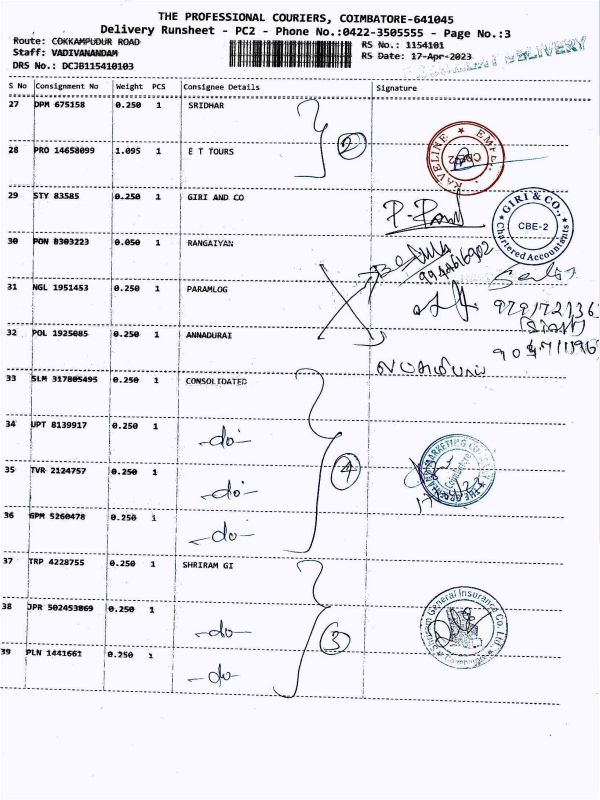 THE PROFESSIONAL COURIERS, COIMBATORE-641045
Delivery Runsheet - PC2 - Phone No.:0422-3505555 - Page No.:3
Route: COKKAMPUDUR ROAD
RS No.: 1154101
DELIVERY
Staff: VADIVANANDAM
RS Date: 17-Apr-2023
DRS No.: DCJB115410103
S No Consignment No Weight PCS Consignee Details Signature
27 DPM 675158 0.250 1 SRIDHAR
2
28 PRO 14658099 1.095 1 E T TOURS
CBE-2
29 STY 83585 0.250 1 GIRI AND CO
GIRI & CO., CBE-2 Chartered Accountants
30 PON 8303223 0.050 1 RANGAIYAN
9944616902
31 NGL 1951453 0.250 1 PARAMLOG
32 POL 1925085 0.250 1 ANNADURAI
33 SLM 317805495 0.250 1 CONSOLIDATED
34 UPT 8139917 0.250 1 -do-
35 TVR 2124757 0.250 1 -do-
4
MARKETING CO
Coimbatore
36 GPM 5260478 0.250 1 -do-
37 TRP 4228755 0.250 1 SHRIRAM GI
38 JPR 502453869 0.250 1 -do-
3
General Insurance Co. Ltd.
39 PLN 1441661 0.250 1 -do-